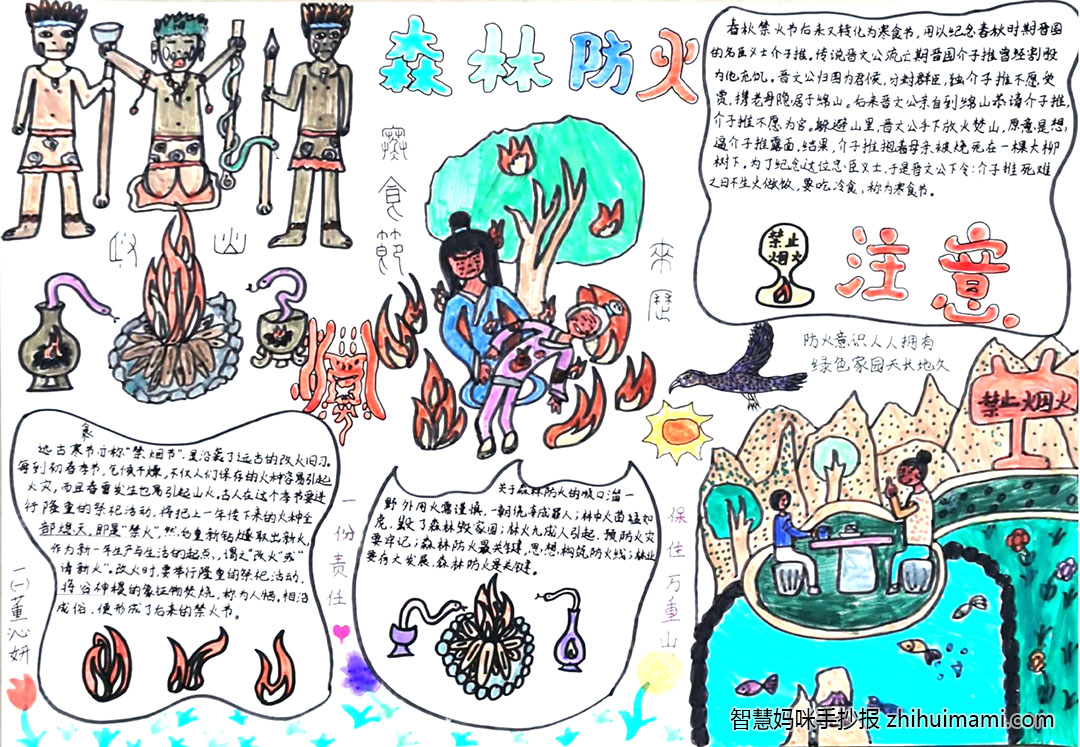 森林防火
春秋禁火节后来又转化为寒食节，用以纪念春秋时期晋国
的名臣义士介子推。传说晋文公流亡期晋国介子推曾经割股
为他充饥。晋文公归国为君侯，分封群臣，独介子推不愿受
赏，携老母隐居于绵山。后来晋文公亲自到绵山恭请介子推，
介子推不愿为官。躲避山里，晋文公手下放火焚山，原意是想
逼介子推露面，结果，介子推抱着母亲被烧死在一棵大柳
树下。为了纪念这位忠臣义士，于是晋文公下令：介子推死难
之日不生火做饭，要吃冷食，称为寒食节。
禁止
烟火
注意
寒食節
來歷
防火意识人人拥有
绿色家园天长地久
禁止烟火
食
远古寒节亦称"禁烟节"，是沿袭了远古的改火旧习。
每到初春季节，气候干燥，不仅人们保存的火种容易引起
火灾，而且春雷发生也易引起山火。古人在这个季节要进
行隆重的祭祀活动，将把上一年传下来的火种全
部熄灭，即是"禁火"。然后重新钻燧取出新火，
作为新一年生产与生活的起点，谓之"改火"或"
请新火"。改火时，要举行隆重的祭祀活动，
将谷神稷的象征物焚烧，称为人牺。相沿
成俗，便形成了后来的禁火节。
一(一)董沁妍
一份责任
关于森林防火的顺口溜一
野外用火需谨慎，一朝洗漆成罪人；林中火苗猛如
虎，毁了森林毁家园；林火九成人引起，预防火灾
要牢记；森林防火最关键，思想构筑防火线；林业
要有大发展，森林防火是关键。
保住万重山
智慧妈咪手抄报 zhihuimami.com